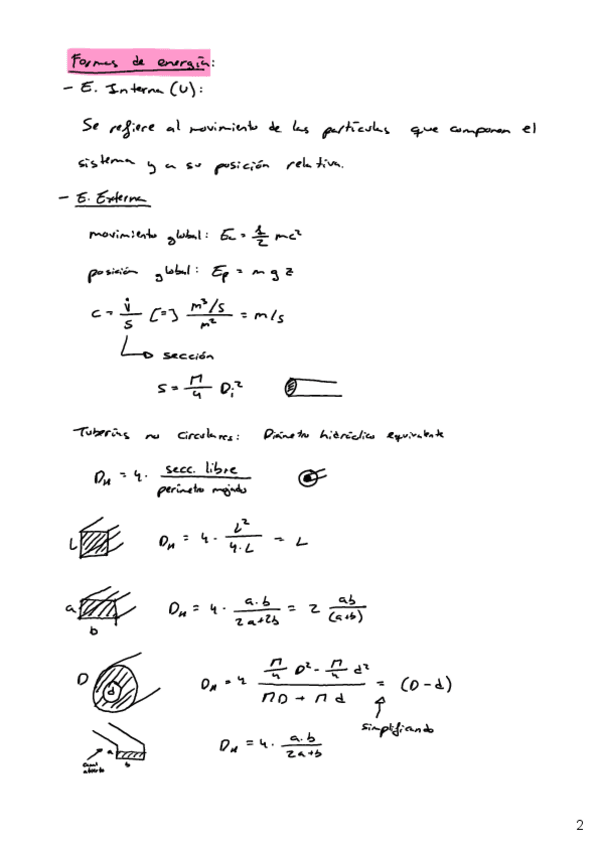 Formas de energía:
- E. Interna (U):
Se refiere al movimiento de las partículas que componen el
sistema y a su posición relativa.
- E. Externa
movimiento global: Ec = 1/2 mc²
posición global: Ep = m g z
c = V̇/S [=] m³/s / m² = m/s
sección
S = π/4 Di²
Tuberías no circulares: Diámetro hidráulico equivalente
DH = 4 · secc. libre / perímetro mojado
L DH = 4 · L² / 4·L = L
a b DH = 4 · a·b / 2a+2b = 2 ab / (a+b)
D d DH = 4 π/4 D² - π/4 d² / πD + πd = (D-d)
simplificando
canal abierto a b DH = 4 · a·b / 2a+b
2